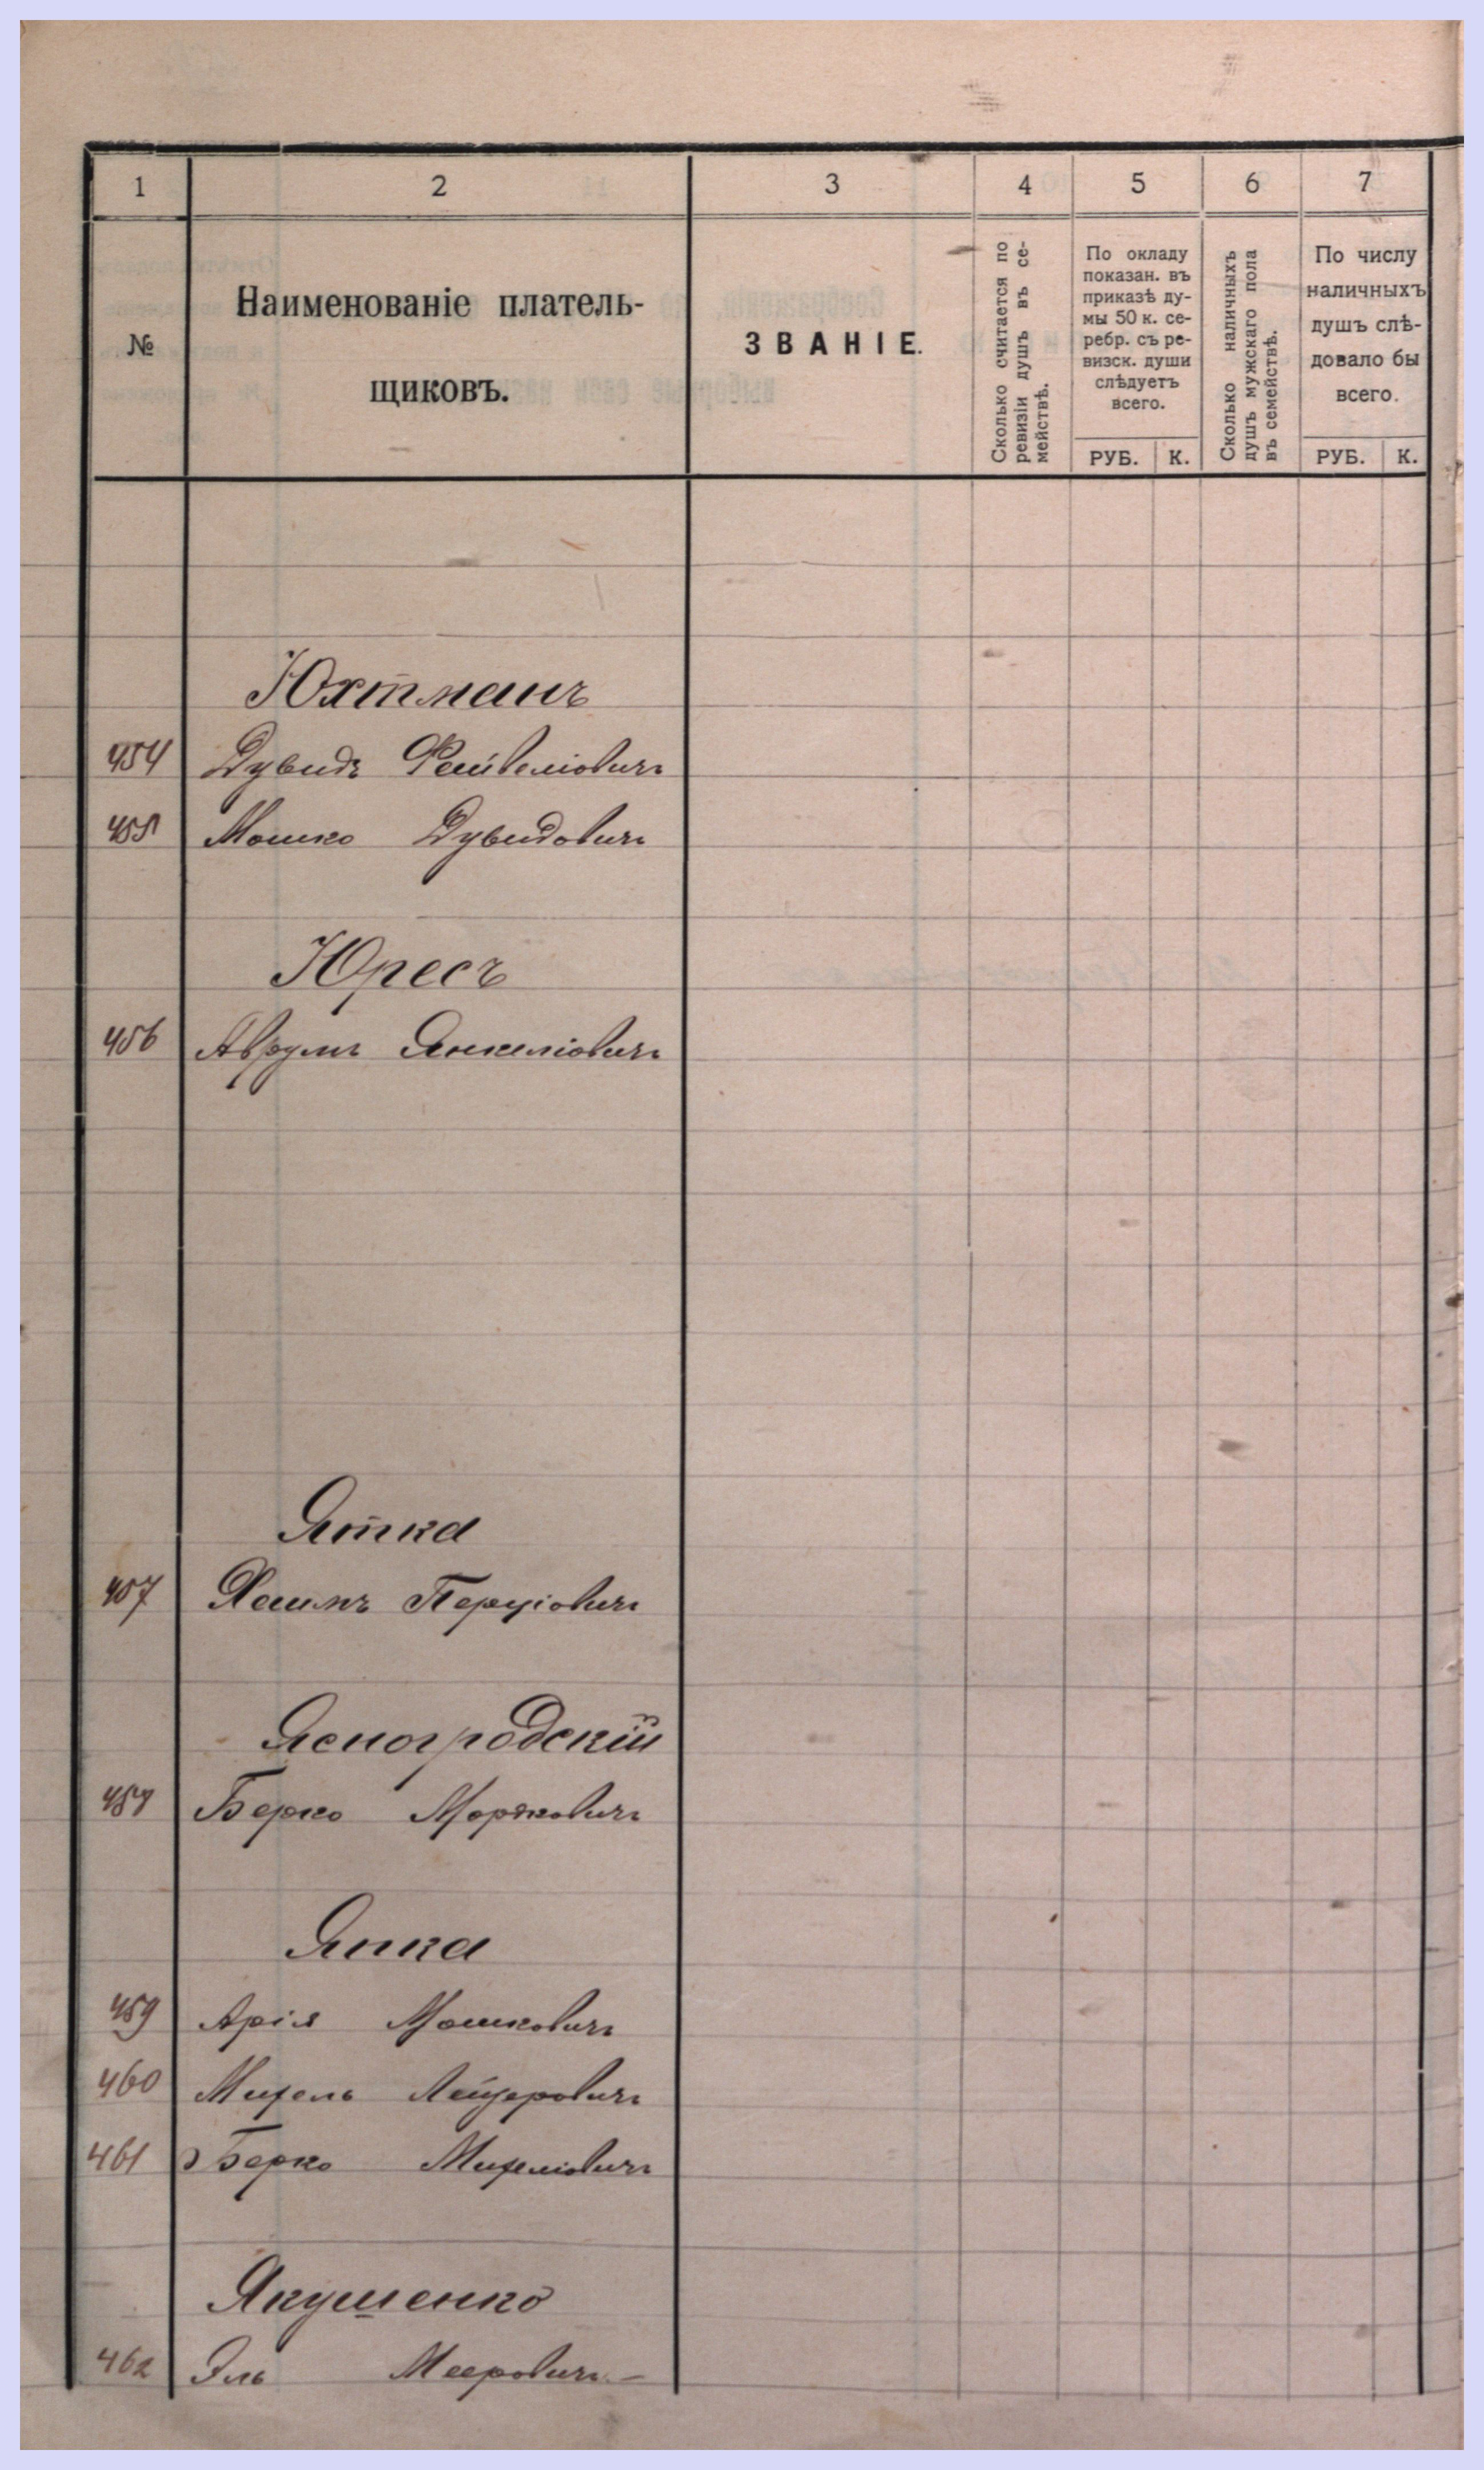 1 2 3 4 5 6 7
№
Наименованіе платель-
щиковъ.
ЗВАНІЕ.
Сколько считается по
ревизіи душъ въ се-
мействѣ.
По окладу
показан. въ
приказѣ ду-
мы 50 к. се-
ребр. съ ре-
визск. души
слѣдуетъ
всего.
РУБ. К.
Сколько наличныхъ
душъ мужскаго пола
въ семействѣ.
По числу
наличныхъ
душъ слѣ-
довало бы
всего.
РУБ. К.
Юхтманъ
454 Дувидъ Фейвеліовичъ
455 Мошко Дувидовичъ
Юресъ
456 Аврумъ Янкеліовичъ
Ятка
457 Хаимъ Перціовичъ
Ясногродскій
458 Берко Моркович
Япка
459 Арія Мошковичъ
460 Михель Лейзеровичъ
461 Берко Михеліовичъ
Якушенко
462 Эль Мееровичъ